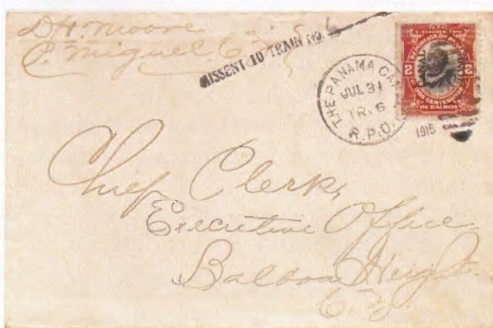 D.H. Moore
P. Miguel C.Z.
MISSENT TO TRAIN NO.
THE PANAMA CAN
JUL 31
TR. 6
R.P.O.
1915
2 2
DE BALBOA
Chief Clerk,
Executive Office
Balboa Heights.
C.Z.